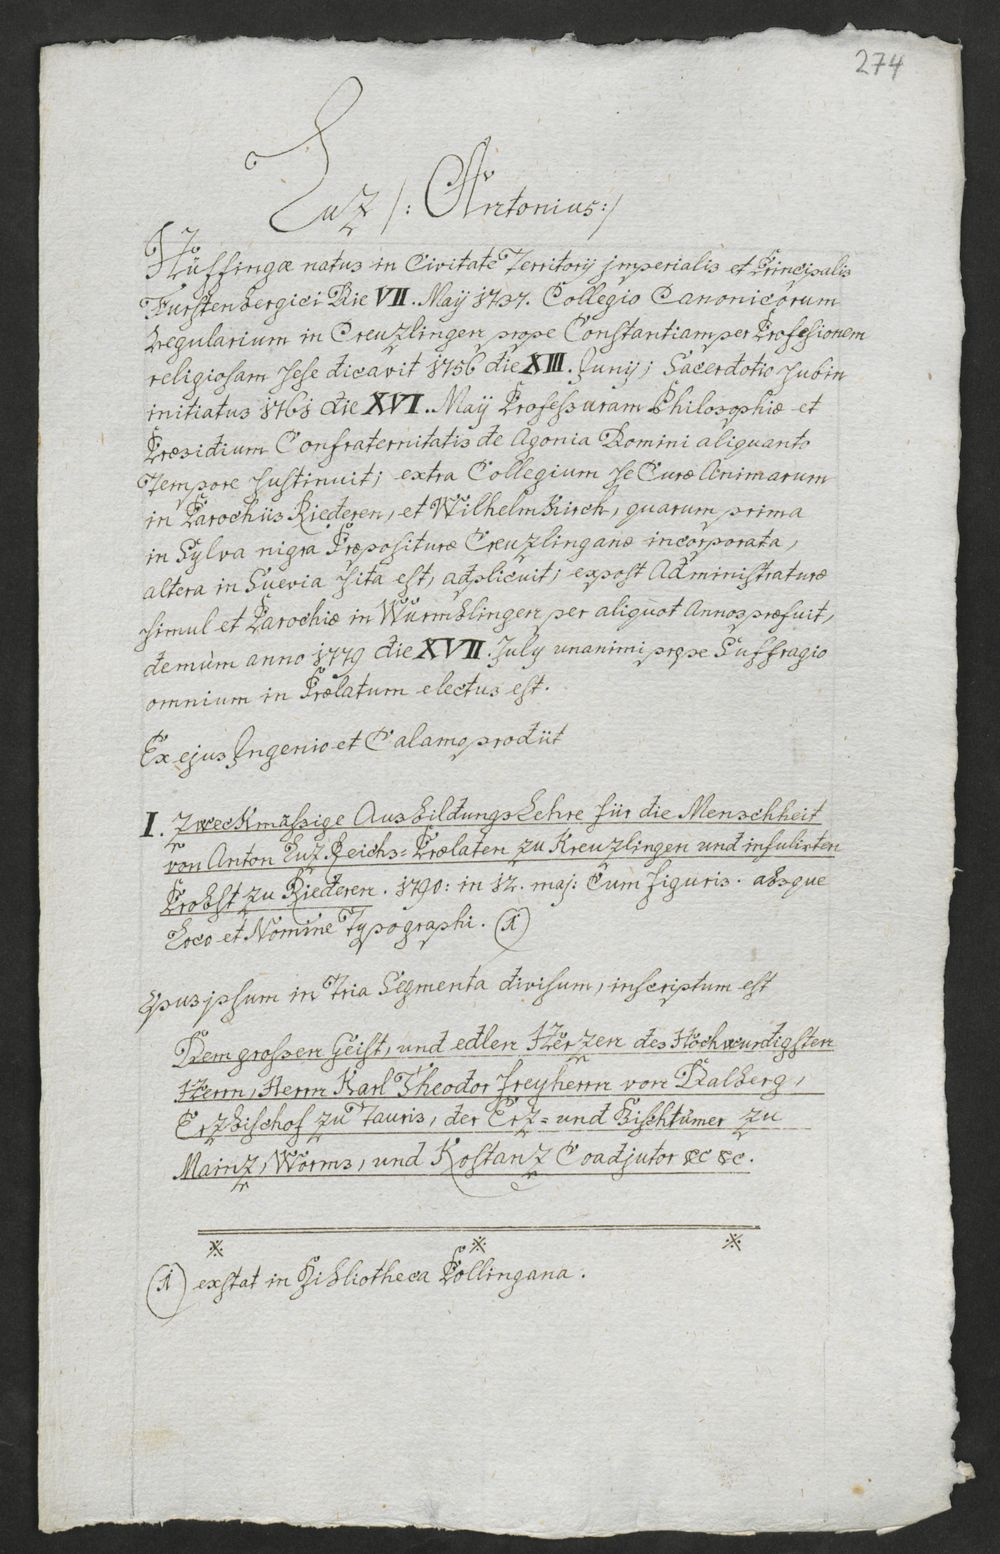 274
Luz /: Antonius:/
Hüffingæ natus in Civitate Territorij jmperialis et Principalis
Furstenbergici Die VII. Maÿ 1737. Collegio Canonicorum
Regularium in Creuzlingen prope Constantiam per Professionem
religiosam sese dicavit 1756 die XIII. Junij; Sacerdotio subin
initiatus 1761 die XVI. Maÿ Professuram Philosophiæ et
Præsidium Confraternitatis de Agonia Domini aliquanto
Tempore sustinuit; extra Collegium se Curæ Animarum
in Parochiis Riederen, et Wilhelmkirch, quarum prima
in Sylva nigra Præposituræ Creuzlinganæ incorporata,
altera in Suevia sita est, adplicuit; expost Administraturæ
simul et Parochiæ in Wurmblingen per aliquot Annos præfuit,
demùm anno 1779 die XVII. July unanimi prope Suffragio
omnium in Prælatum electus est.
Ex ejus Jngenio et Calamo prodiit
I. Zweckmässige Ausbildungs Lehre für die Menschheit
von Anton Luz Reichs=Prælaten zu Kreuzlingen und infulirten
Probst zu Riederen. 1790: in 12. maj: Cum figuris. absque
Loco et Nomine Typographi. (1)
Opus jpsum in Tria Segmenta divisum, inscriptum est
Dem grossen Geist, und edlen Herzen des Hochwurdigsten
Herrn, Herrn Karl Theodor Freyherrn von Dalberg,
Erzbischof zu Tauris, der Erz= und Bisthümer zu
Mainz, Worms, und Kostanz Coadjutor &c &c.
(1) exstat in Bibliotheca Pollingana.